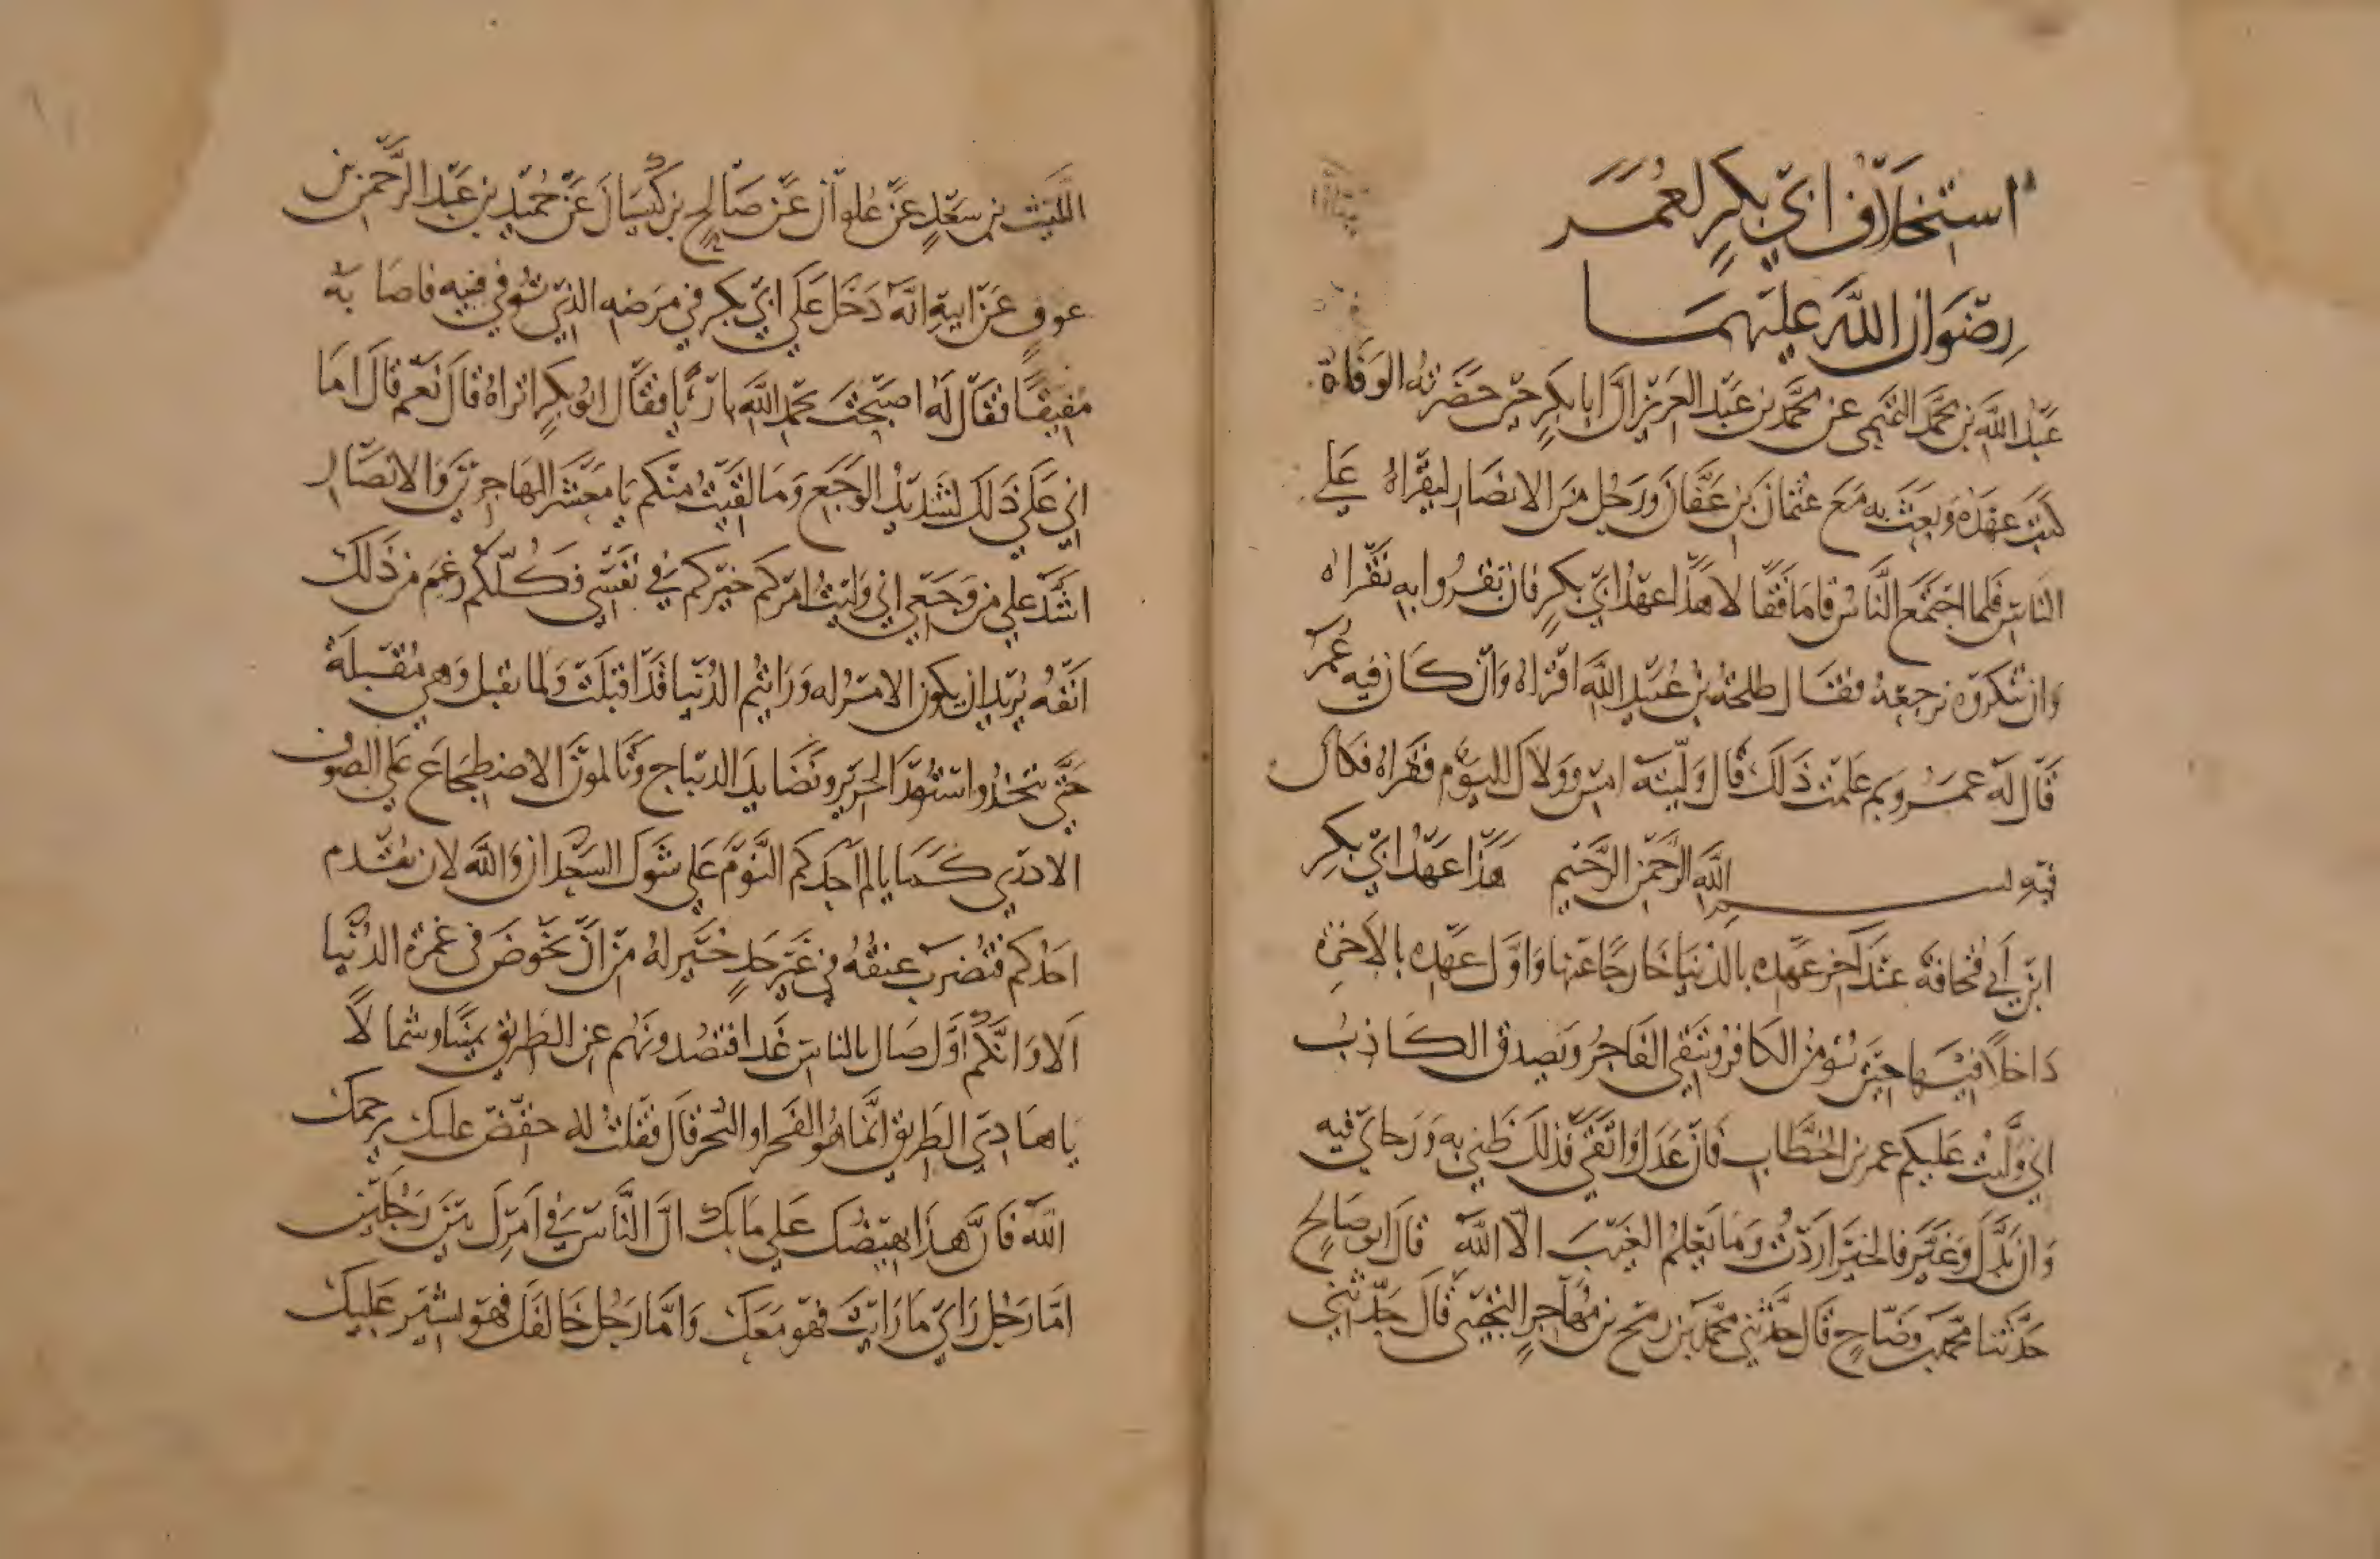 استخلاف ابي بكر لعمر
رضوان الله عليهما
عبد الله بن محمد التيمي عن محمد بن عبد العزيز ان ابا بكر حين حضرته الوفاة
كتب عهده وبعث به مع عثمان بن عفان ورجل من الانصار ليقراه علي
الناس فلما اجتمع الناس قاما فقالا هذا عهد ابي بكر فان تقروا به نقراه
وان تنكروه نرجعه فقال طلحة بن عبيد الله اقراه وان كان فيه عمر
قال له عمر وبم علمت ذلك قال وليته امس وولاك اليوم فقراه فكان
فيه بسم الله الرحمن الرحيم هذا عهد ابي بكر
ابن ابي قحافة عند اخر عهده بالدنيا خارجا عنها واول عهده بالاخرة
داخلا فيها حين يؤمن الكافر ويتقي الفاجر ويصدق الكاذب
اني وليت عليكم عمر بن الخطاب فان عدل واتقي فذلك ظني به ورجاي فيه
وان بدل وغير فالخير اردت وما يعلم الغيب الا الله قال ابو صالح
حدثنا محمد بن وضاح قال حدثني محمد بن رمح بن مهاجر التجيبي قال حدثني
الليث بن سعد عن علوان عن صالح بن كيسان عن حميد بن عبد الرحمن بن
عوف عن ابيه انه دخل علي ابي بكر في مرضه الذي توفي فيه فاصابه
مفيقا فقال له اصبحت بحمد الله بارئا فقال ابو بكر اتراه قال نعم قال اما
اني علي ذلك لشديد الوجع وما لقيت منكم يا معشر المهاجرين والانصار
اشد علي من وجعي اني وليت امركم خيركم في نفسي فكلكم ورم من ذلك
انفه يريد ان يكون الامر له ورايتم الدنيا قد اقبلت ولما تقبل وهي مقبلة
حتي تتخذوا ستور الحرير ونضايد الديباج وتالمون الاضطجاع علي الصوف
الاذري كما يالم احدكم النوم علي شوك السعدان والله لان يقدم
احدكم فتضرب عنقه في غير حد خير له من ان يخوض في غمرة الدنيا
الا وانكم اول ضال بالناس غدا فتصدونهم عن الطريق يمينا وشمالا
يا هادي الطريق انما هو الفجر او البحر قال فقلت له خفض عليك يرحمك
الله فان هذا يهيضك علي ما بك ان الناس في امرك بين رجلين
اما رجل راي ما رايت فهو معك واما رجل خالفك فهو يشير عليك